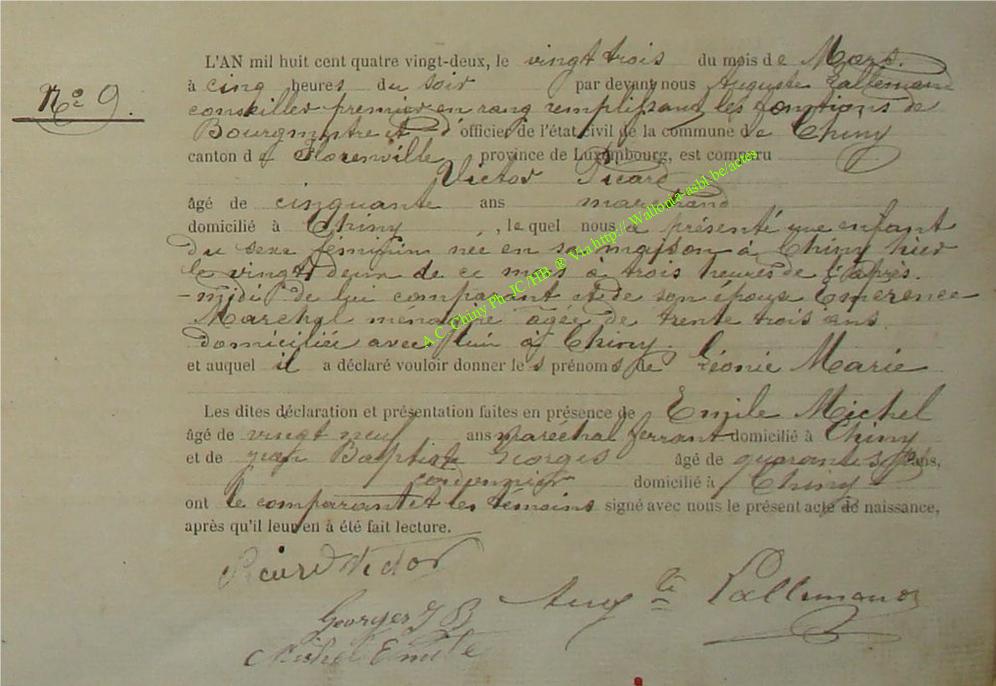 L'AN mil huit cent quatre vingt-deux, le vingt trois du mois de Mars.
à cinq heures du soir par devant nous Auguste Lallemand
No 9.
conseiller premier en rang remplissant les fonctions de
Bourgmestre et d'officier de l'état civil de la commune de Chiny
canton de Florenville province de Luxembourg, est comparu
Victor Picard
âgé de cinquante ans marchand
domicilié à Chiny, lequel nous a présenté une enfant
du sexe féminin née en sa maison à Chiny hier
le vingt deux de ce mois à trois heures de l'après
-midi de lui comparant et de son épouse Emerence
Marchal ménagère âgée de trente trois ans
domiciliée avec lui à Chiny.
et auquel il a déclaré vouloir donner les prénoms de Léonie Marie
Les dites déclaration et présentation faites en présence de Emile Michel
âgé de vingt neuf ans maréchal ferrant domicilié à Chiny
et de Jean Baptiste Georges âgé de quarante sept ans,
cordonnier domicilié à Chiny
ont le comparant et les témoins signé avec nous le présent acte de naissance,
après qu'il leur en à été fait lecture.
Picard Victor
Georges J B
Aug te Lallemand
Michel Emile
A.C. Chiny Ph. JC/HB ® Via http://Wallonia-asbl-be/actes